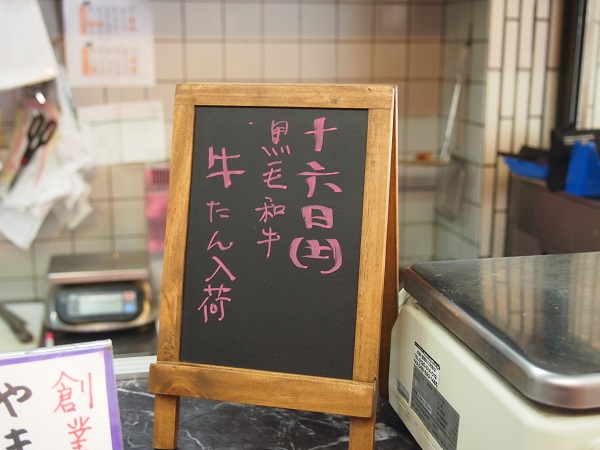 十六日(土)
黒毛和牛
牛たん入荷
創業
やま